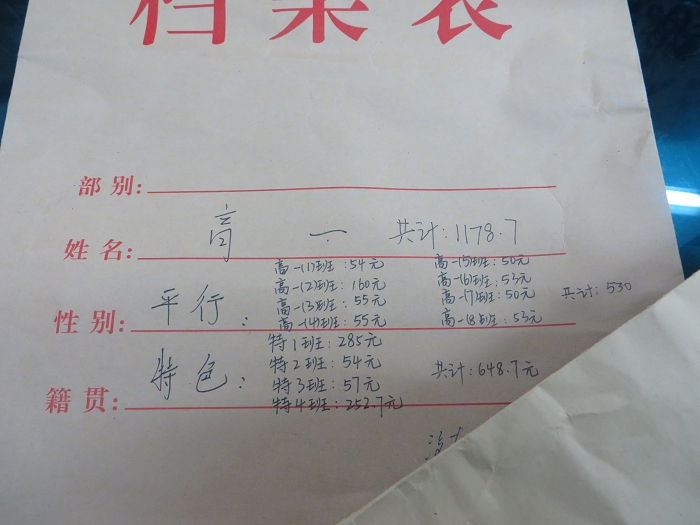 档案袋
部别:
姓名: 高 一 共计:1178.7
高一(1)班:54元 高一(5)班:50元
高一(2)班:160元 高一(6)班:53元
高一(3)班:55元 高一(7)班:50元 共计:530
性别: 平行: 高一(4)班:55元 高一(8)班:53元
特1班:285元
特色: 特2班:54元 共计:648.7元
特3班:57元
籍贯: 特4班:252.7元